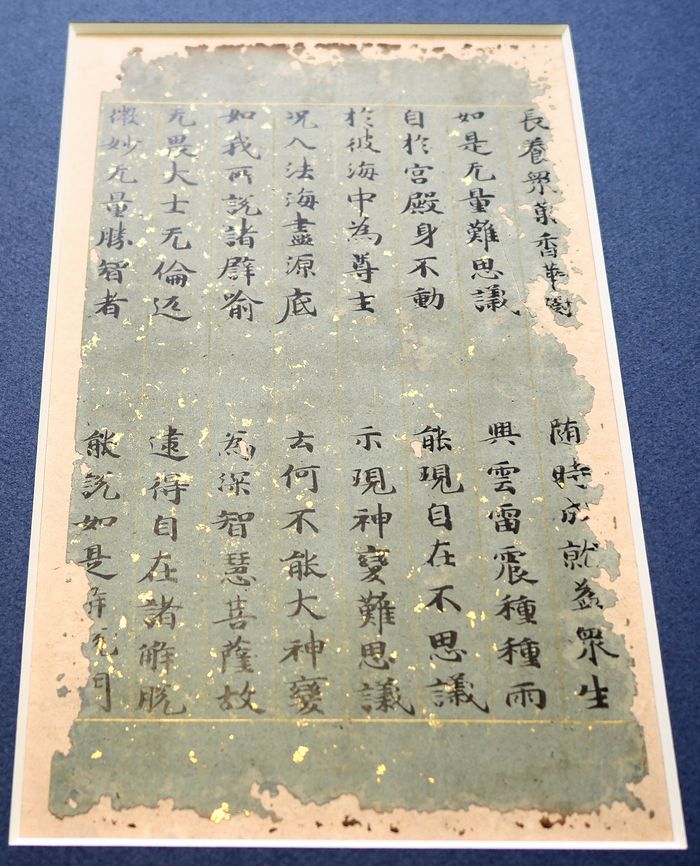 長養衆藥香華樹 随時成就益衆生
如是无量難思議 興雲雷震種種雨
自於宮殿身不動 能現自在不思議
於彼海中為尊主 示現神變難思議
况入法海盡源底 云何不能大神變
如我所說諸辟喻 為深智慧菩薩故
无畏大士无倫匹 逮得自在諸解脫
微妙无量勝智者 能說如是